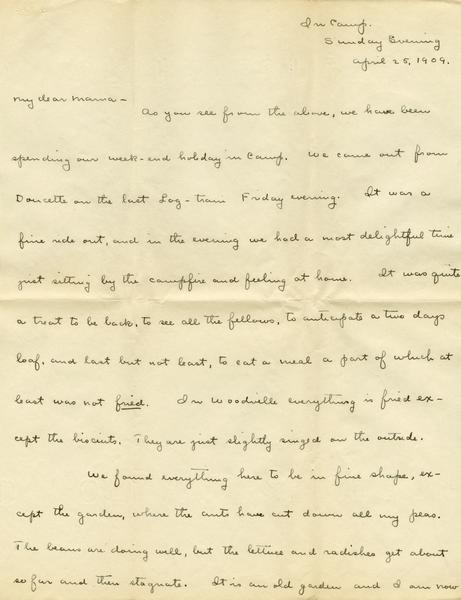 In Camp.
Sunday Evening
April 25, 1909.
My dear Mama-
As you see from the above, we have been
spending our week-end holiday in Camp. We came out from
Doucette on the last Log-train Friday evening. It was a
fine ride out, and in the evening we had a most delightful time
just sitting by the campfire and feeling at home. It was quite
a treat to be back, to see all the fellows, to anticipate a two days
loaf, and last but not least, to eat a meal a part of which at
least was not fried. In Woodville everything is fried ex-
cept the biscuits. They are just slightly singed on the outside.
We found everything here to be in fine shape, ex-
cept the garden, where the ants have cut down all my peas.
The beans are doing well, but the lettuce and radishes get about
so far and then stagnate. It is an old garden and I am now